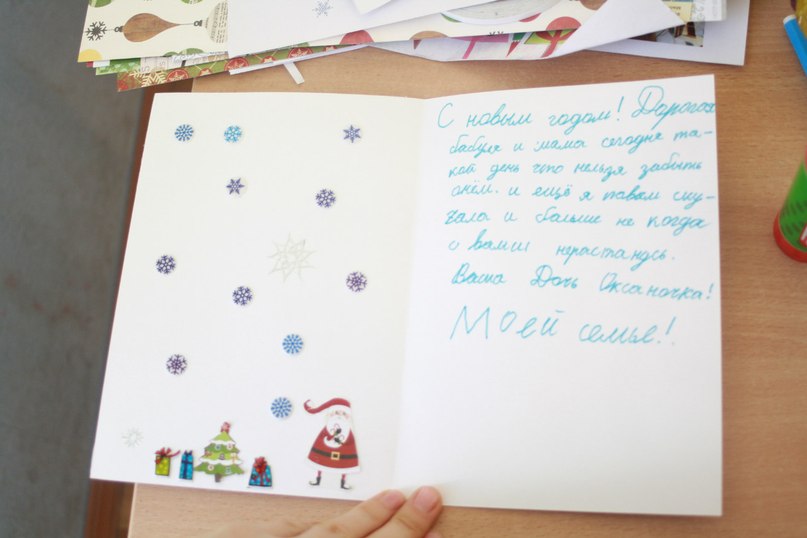 С новым годом! Дорогая
бабуля и мама сегодня та-
кой день что нельзя забыть
онём. и ещё я павам ску-
чала и больше не когда
с вами нерастанусь.
Ваша Дочь Оксаночка!
Моей семье!